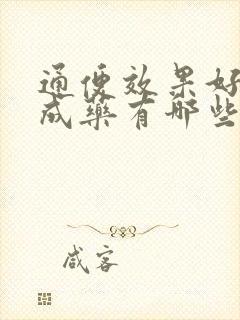 通便效果好
成药有哪些
咸客